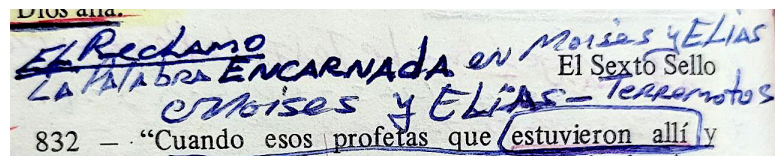 Dios allá.
EL Reclamo
LA PALAbRA ENCARNAdA en Moises y ELIAS
El Sexto Sello
Moises y ELIAS – Terremotos
832 – “Cuando esos profetas que estuvieron allí y